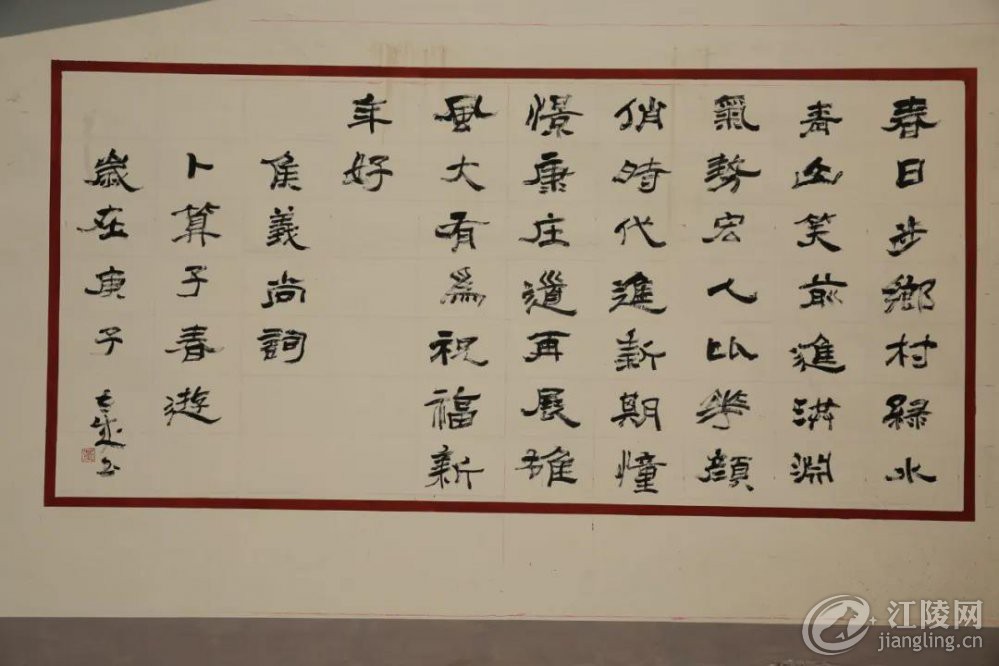 春日步鄉村緑水
青山笑前進洪淵
氣勢宏人比華顔
俏時代進新期憧
憬康庄道再展雄
風大有爲祝福新
年好
侯義尚詞
卜算子春遊
歲在庚子
江陵网
jiangling.cn